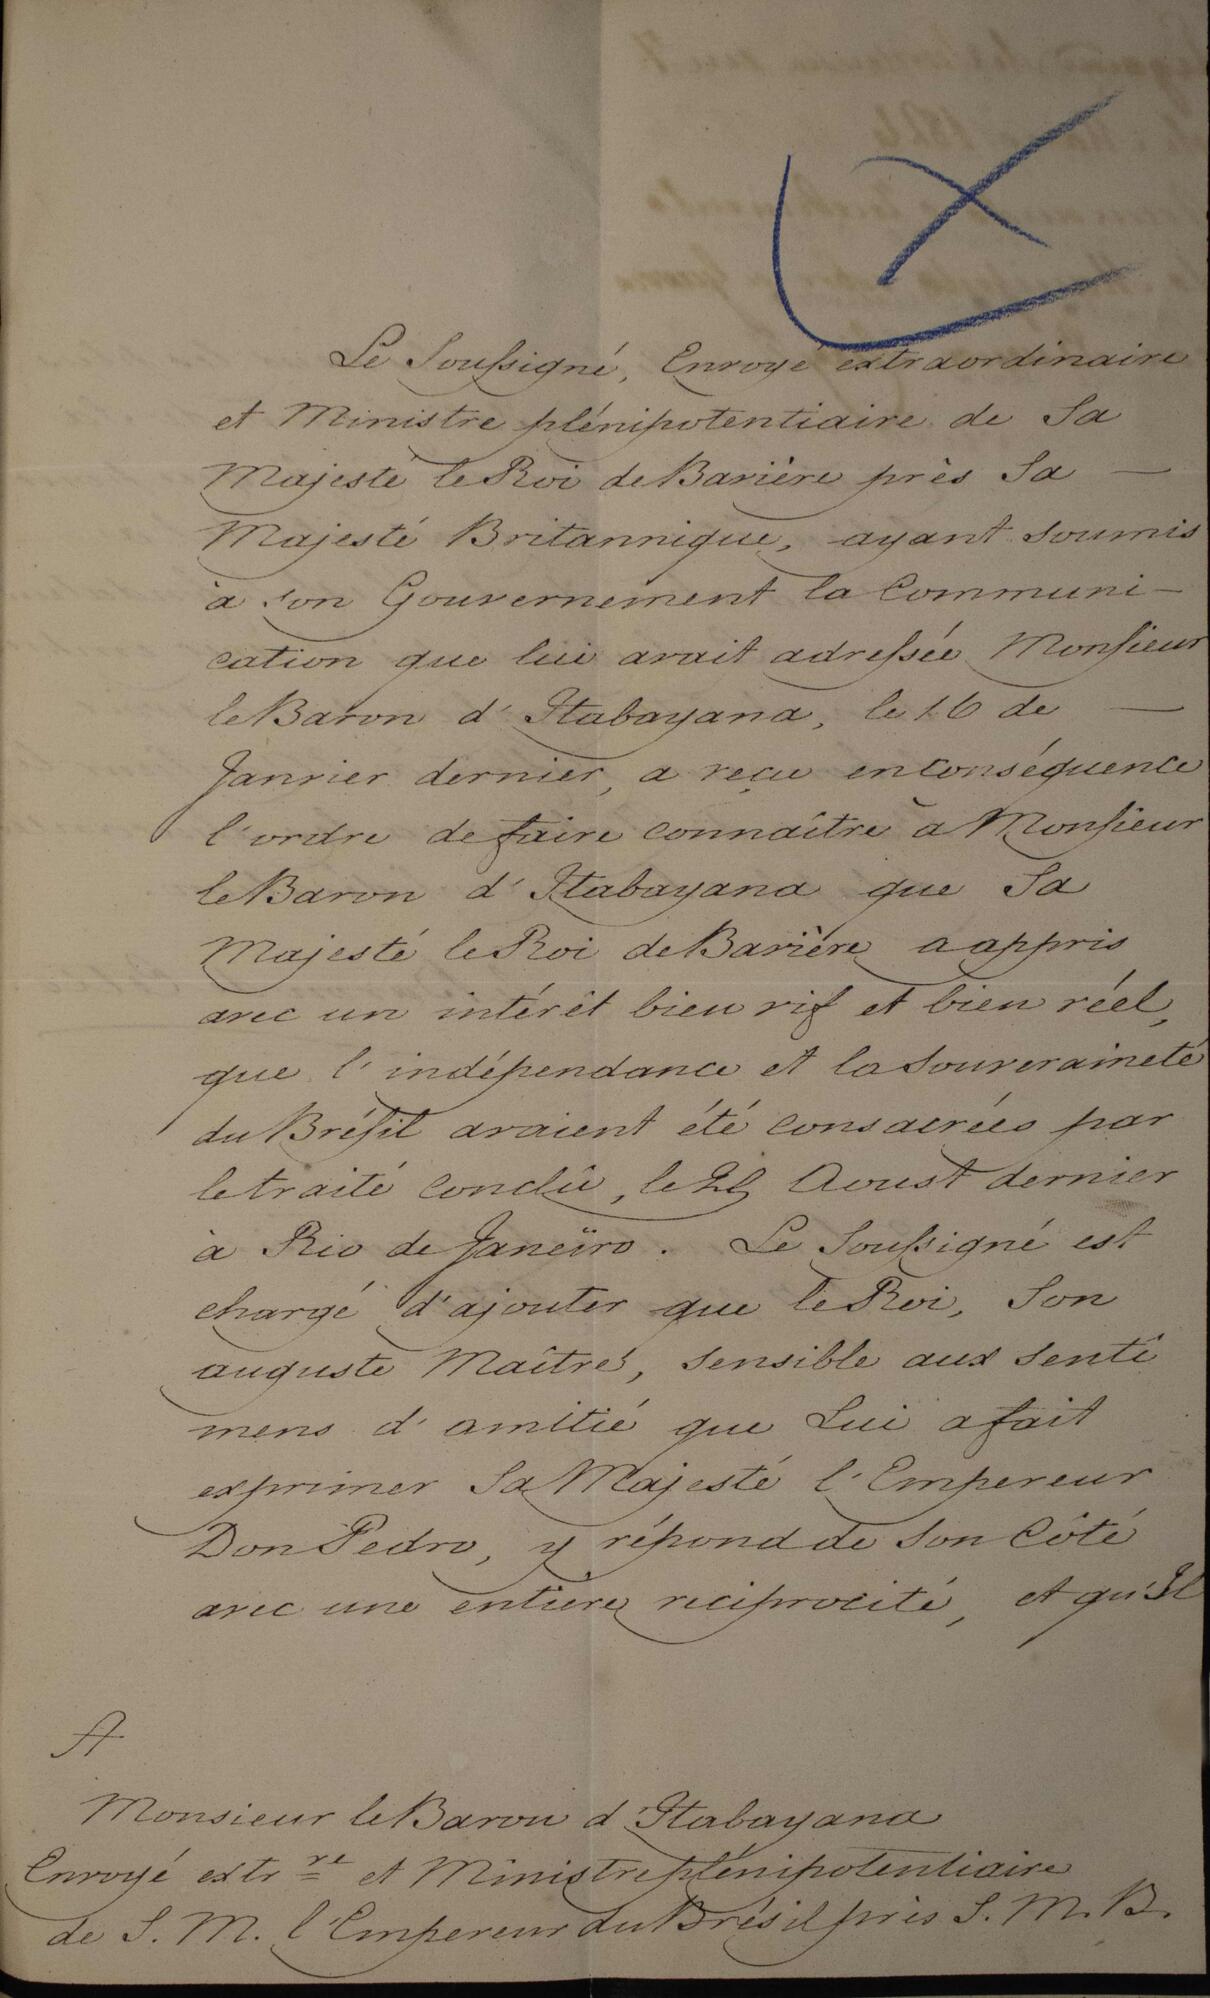 Le Soussigné, Envoyé extraordinaire
et Ministre plénipotentiaire de Sa
Majesté le Roi de Bavière près Sa —
Majesté Britannique, ayant soumis
à son Gouvernement la Communi-
cation que lui avait adressée Monsieur
le Baron d'Itabayana, le 16 de —
Janvier dernier, a reçu en conséquence
l'ordre de faire connaître à Monsieur
le Baron d'Itabayana que Sa
Majesté le Roi de Bavière a appris
avec un intérêt bien vif et bien réel,
que l'indépendance et la Souveraineté
du Brésil avaient été consacrées par
le traité conclû, le Aoust dernier
à Rio de Janeïro. Le Soussigné est
chargé d'ajouter que le Roi, Son
auguste Maître, sensible aux senti
mens d'amitié que Lui a fait
exprimer Sa Majesté l'Empereur
Don Pedro, y répond de Son Côté
avec une entière réciprocité, et qu'Il
A
Monsieur le Baron d'Itabayana
Envoyé extr.re et Ministre plénipotentiaire
de S. M. l'Empereur du Brésil près S. M. B.